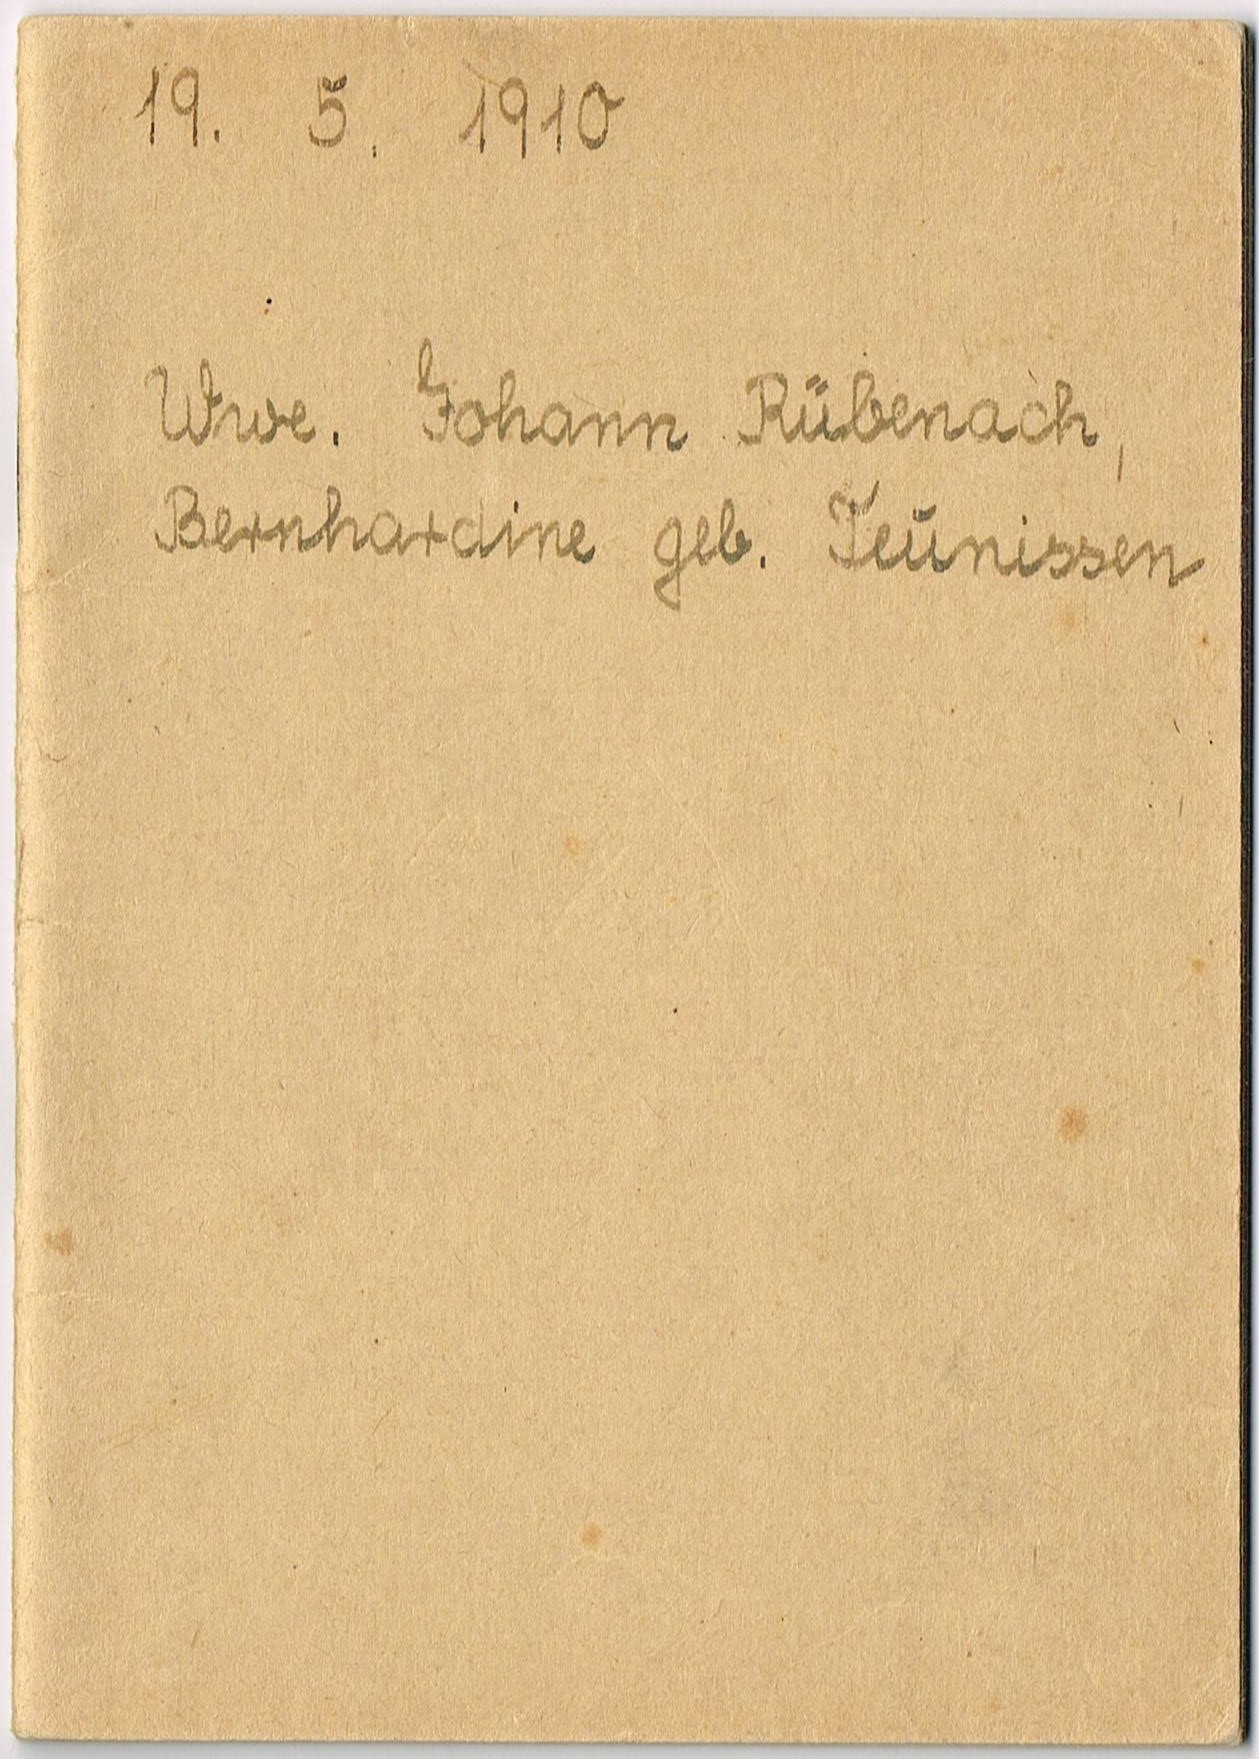 19. 5. 1910
Wwe. Johann Rübenach,
Bernhardine geb. Teunissen